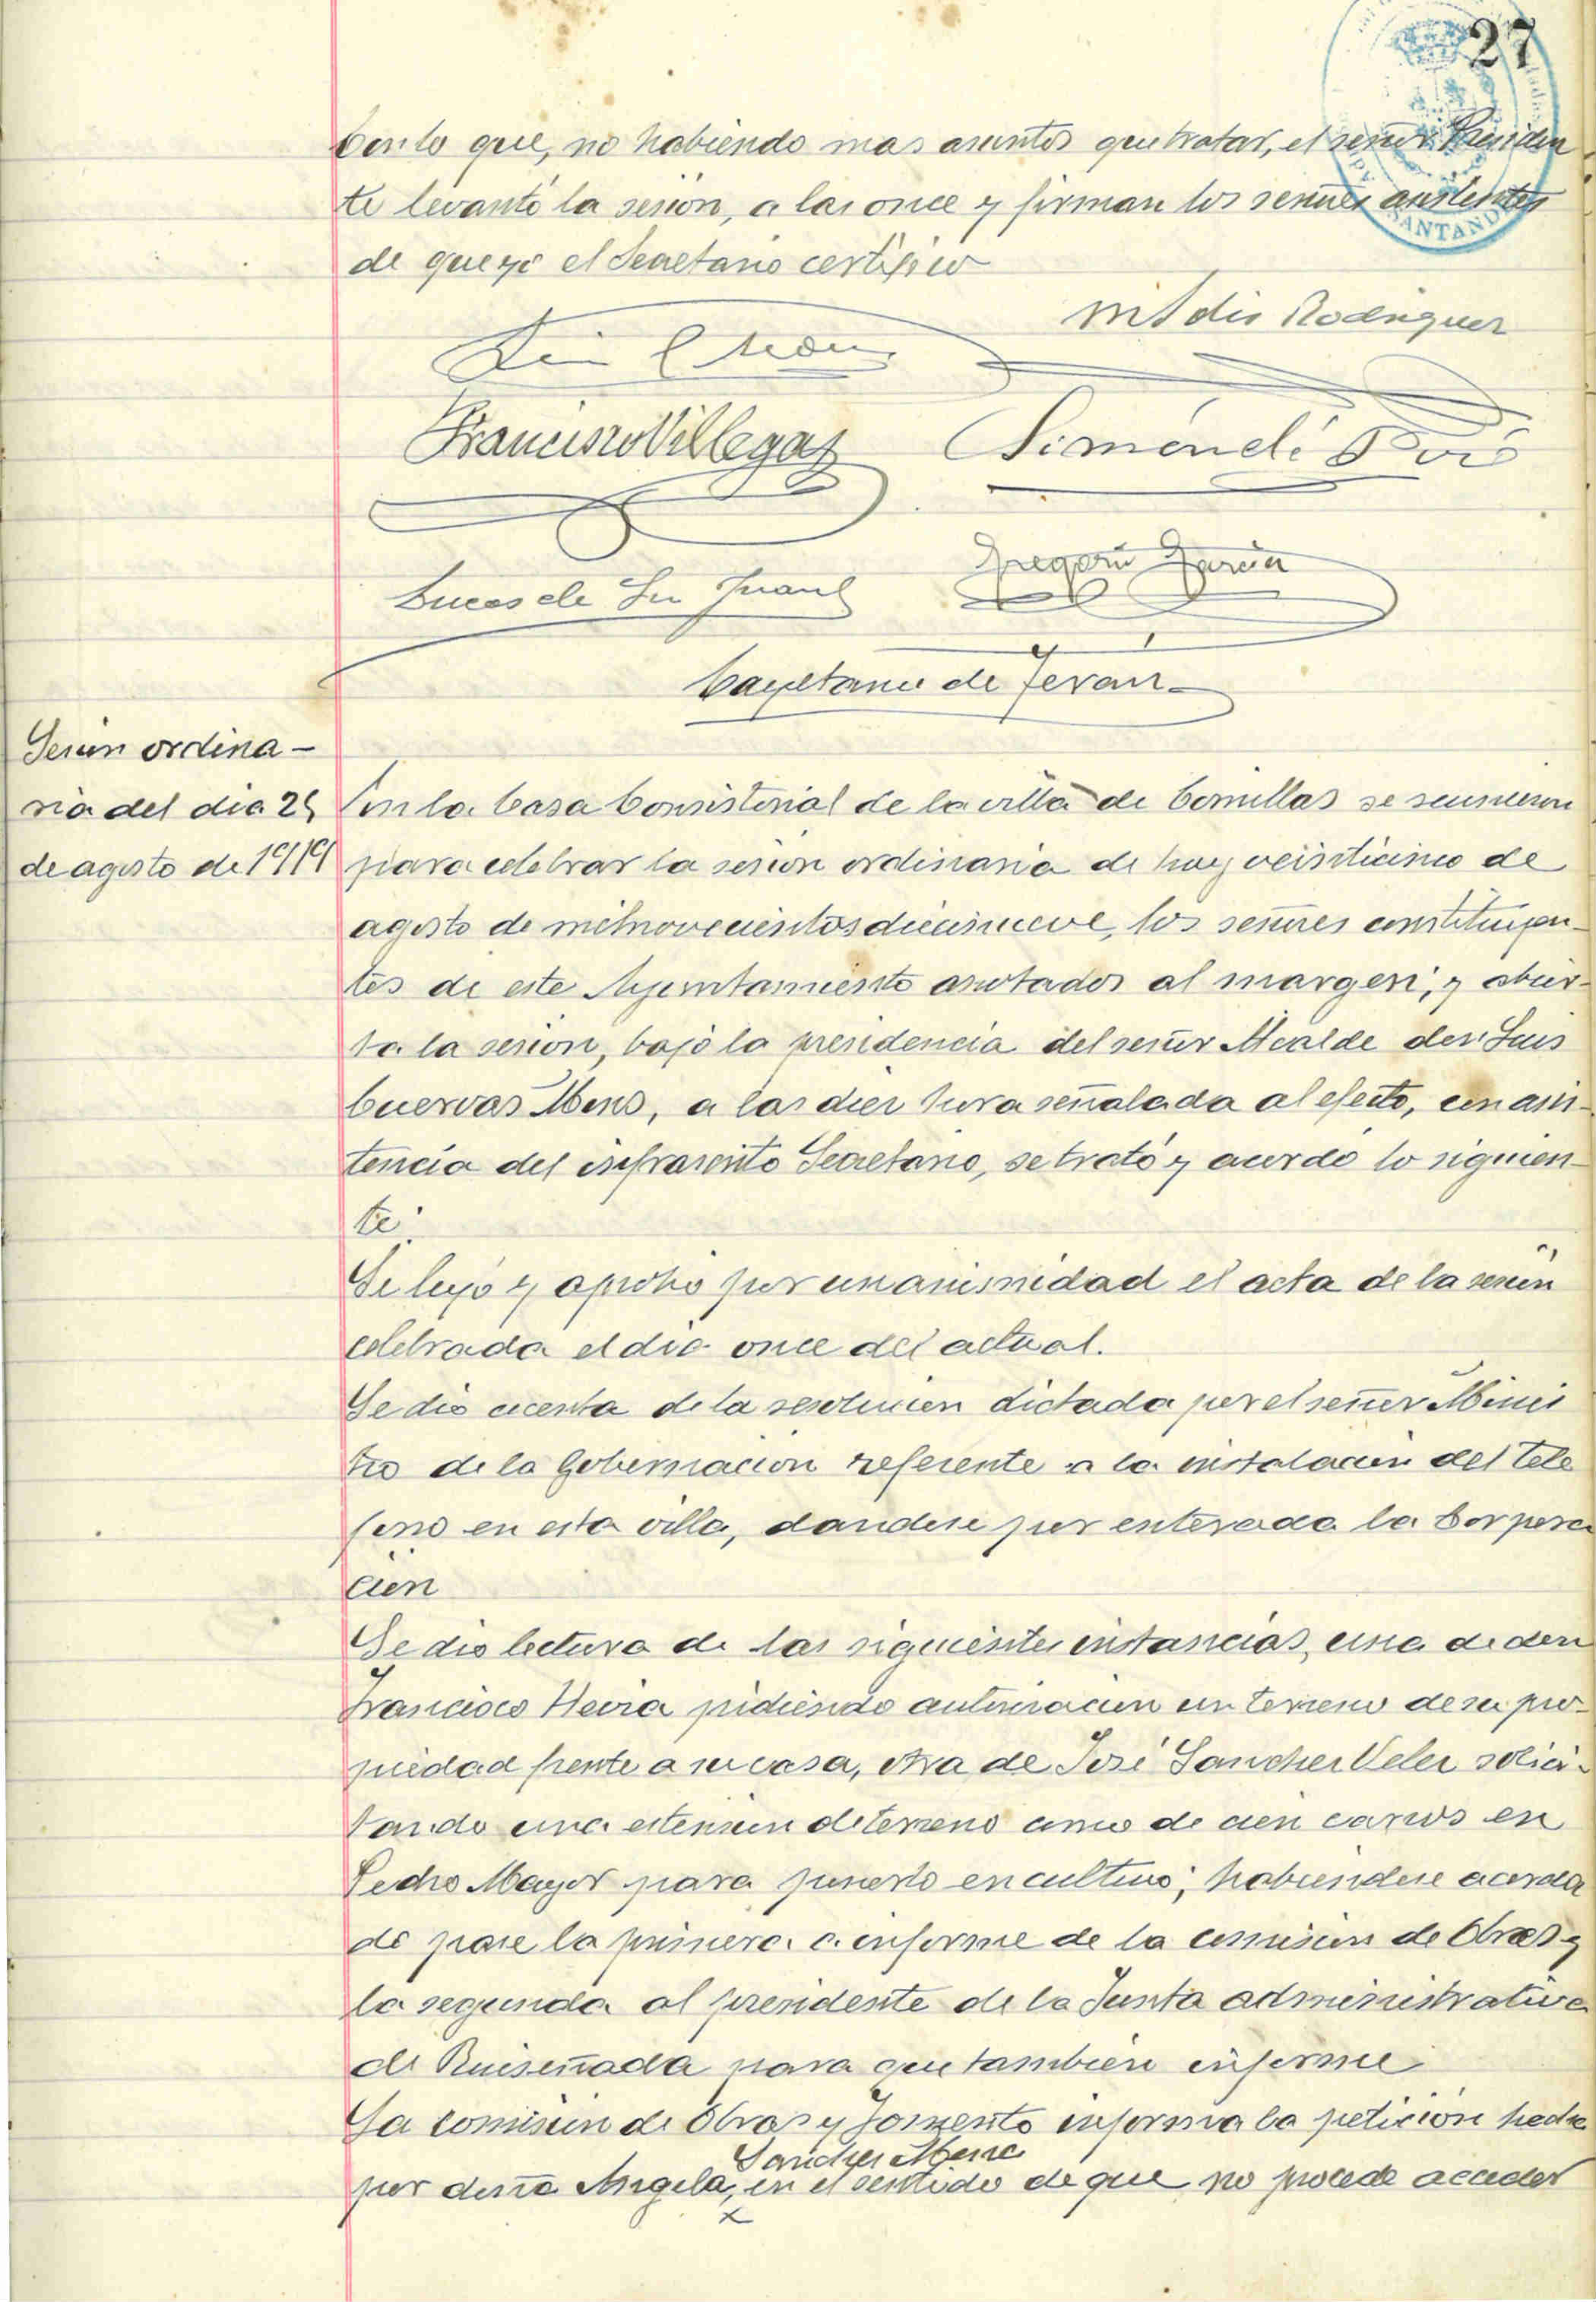 27
Con lo que, no habiendo mas asuntos que tratar, el señor Presiden
te levantó la sesion, a las once y firman los señores asistentes
de que yo el Secretario certifico
Rodriguez
Francisco Villegas
Gregorio Garcia
Lucas de San Juan
Cayetano de Teran
Sesion ordina-
ria del dia 25
de agosto de 1919
En la Casa Consistorial de la villa de Comillas se reunieron
para celebrar la sesion ordinaria de hoy veinticinco de
agosto de mil novecientos diecinueve, los señores constituyen-
tes de este Ayuntamiento anotados al margen, y abier-
ta la sesion, bajo la presidencia del señor Alcalde don Luis
Cuervas Mons, a las diez hora señalada al efecto, con asis-
tencia del infrascrito Secretario, se trató y acordó lo siguien-
te:
Se leyó y aprobó por unanimidad el acta de la sesion
celebrada el dia once del actual.
Se dio cuenta de la resolucion dictada por el señor Minis
tro de la Gobernacion referente a la instalacion del tele
fono en esta villa, dandose por enterada la Corpora
cion
Se dio lectura de las siguientes instancias, una de don
Francisco Hevia pidiendo autorizacion un terreno de su pro-
piedad frente a su casa, otra de José Sanchez Velez solici-
tando una estension de terreno como de cien carros en
Pedro Mayor para ponerlo en cultivo; habiendose acorda
do pase la primera a informe de la comision de Obras y
la segunda al presidente de la Junta administrativa
de Ruiseñada para que tambien informe
La comision de Obras y Fomento informa la peticion hecha
por doña Angela, Sanchez Mene en el sentido de que no procede acceder
x
SANTANDER